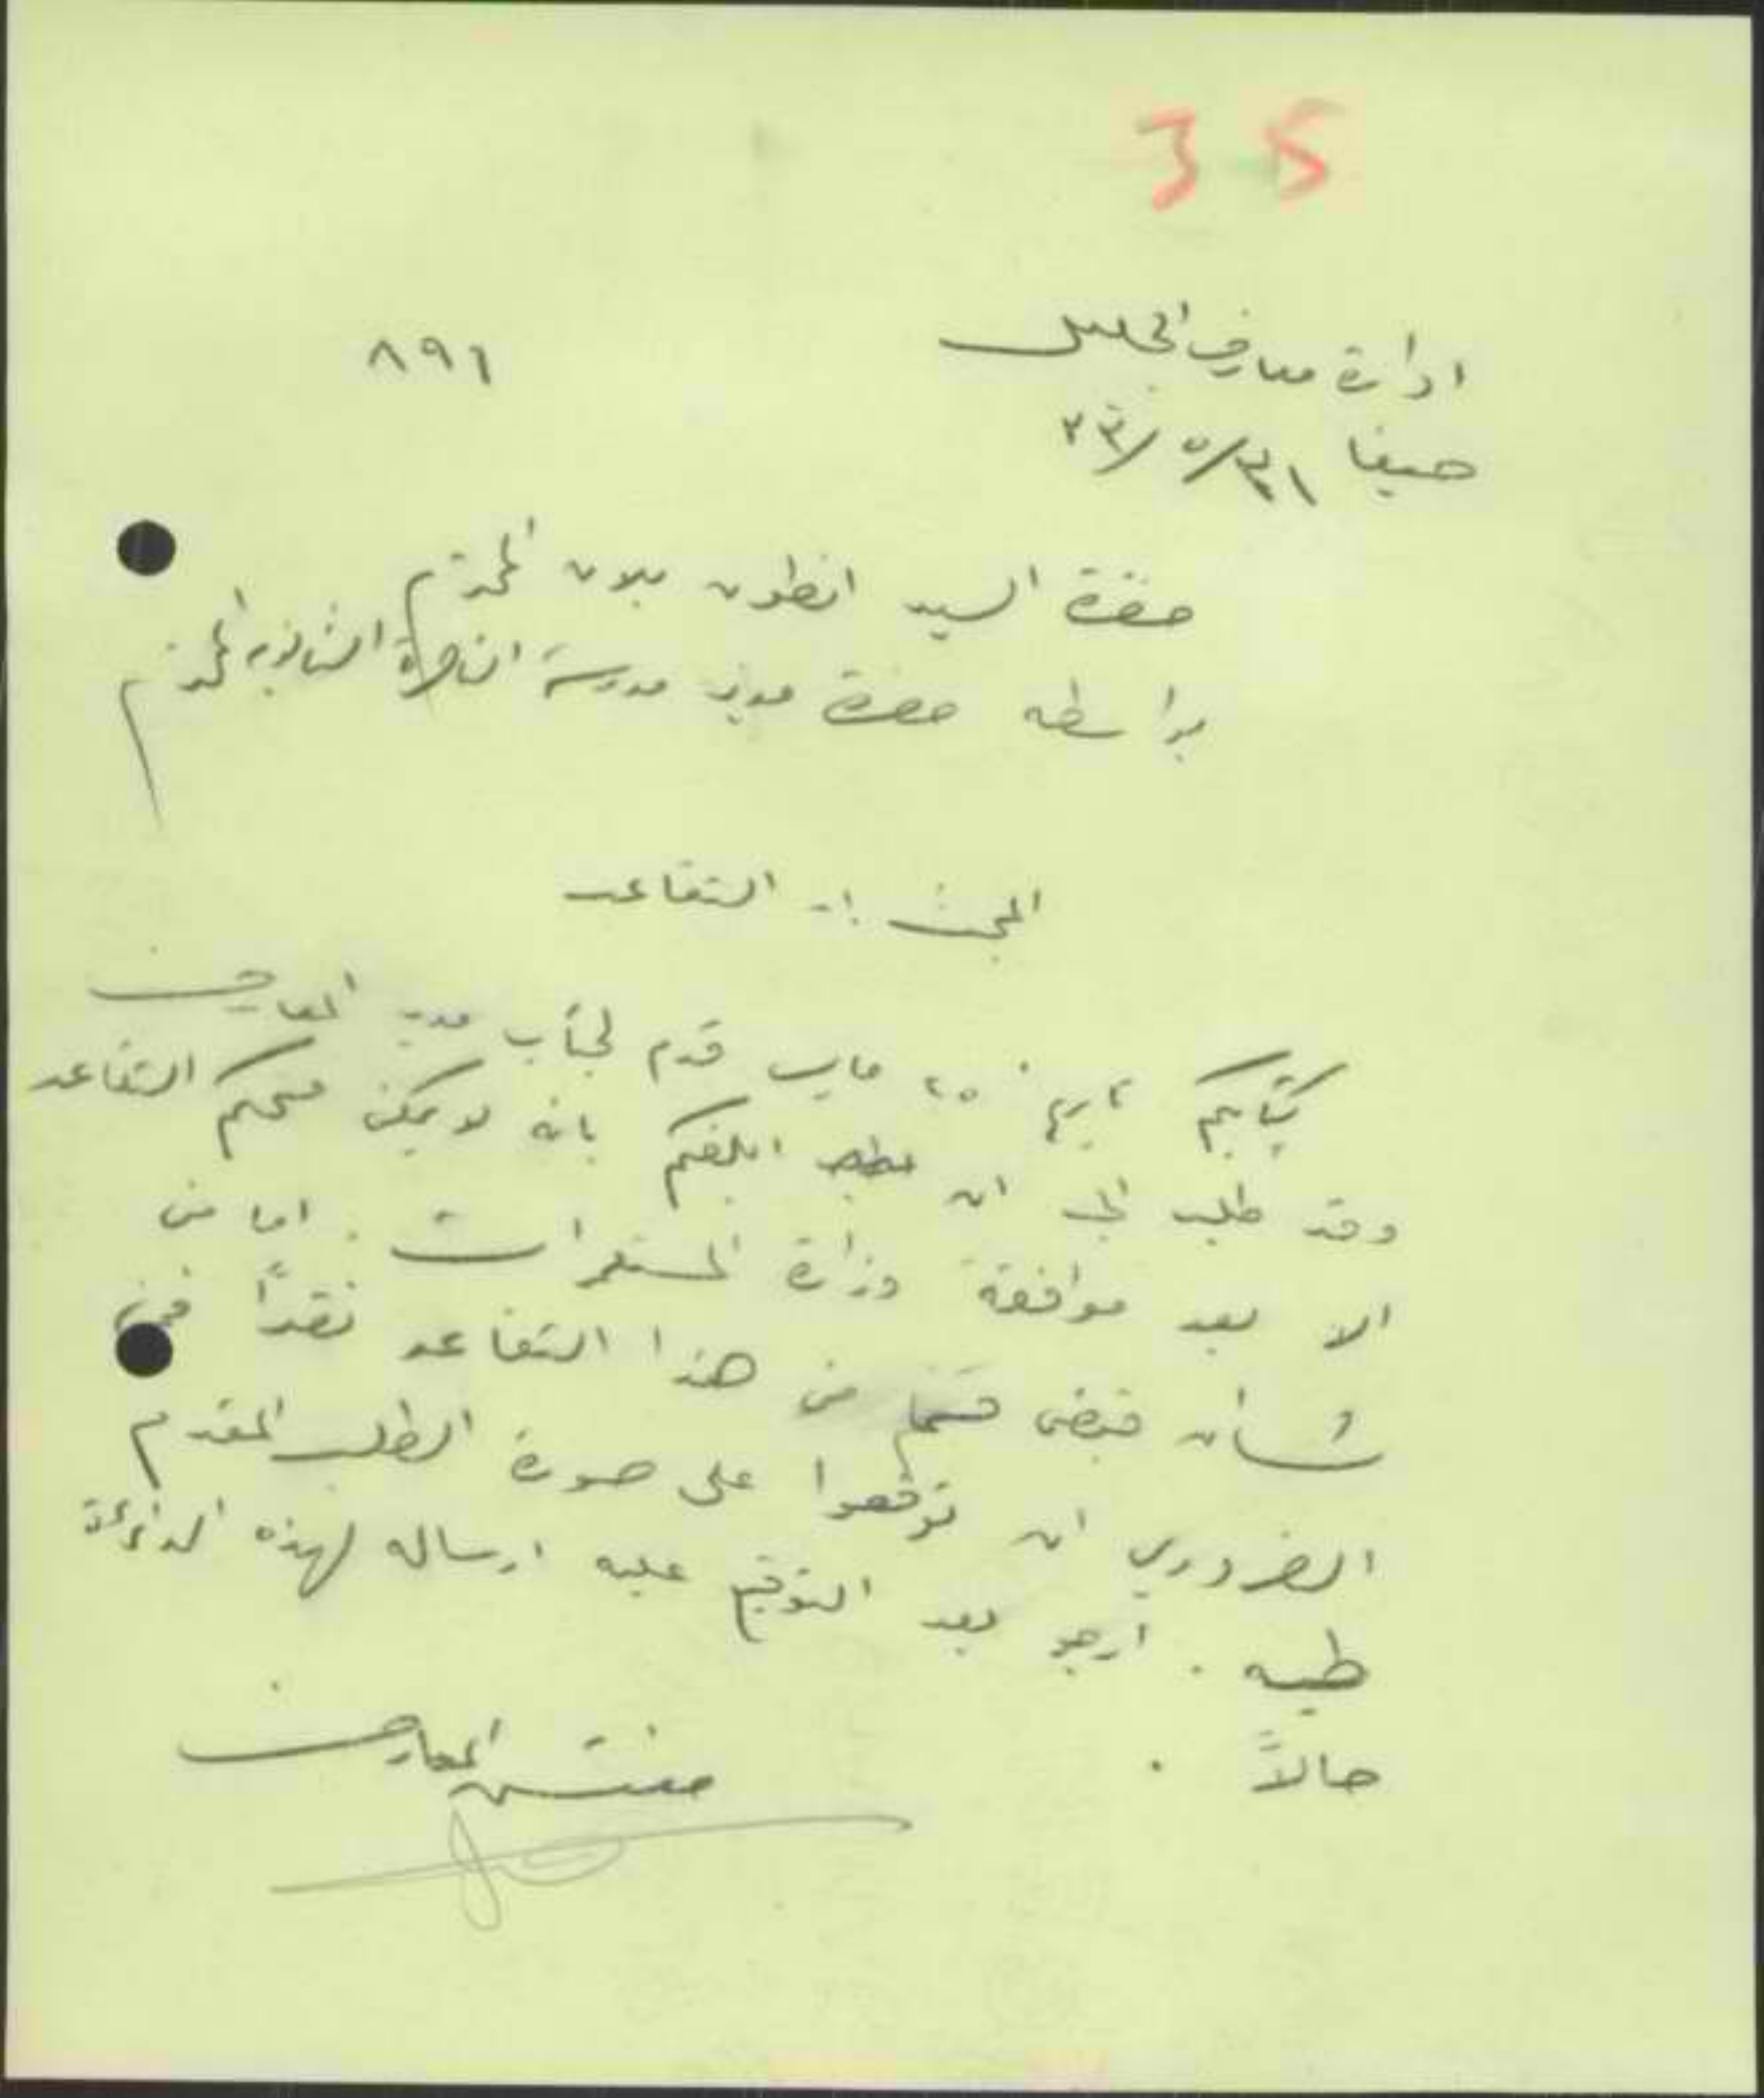 35
ادارة معارف الجليل
٨٩٦
حيفا ٣١/٥/٤٣
حضرة السيد انطون بلان المحترم
بواسطه حضرة مدير مدرسة الناصرة الثانوية المحترم
البحث :- التقاعد
كتابكم تاريخ ٢٥ مايس قدم لجناب مدير المعارف
وقد طلب الي ان ابلغكم بانه لا يمكن منحكم التقاعد
الا بعد موافقة وزارة المستعمرات . اما من
شأن قبض قسما من هذا التقاعد نقداً فمن
الضروري ان توقعوا على صورة الطلب المقدم
طيه . ارجو بعد التوقيع عليه ارساله لهذه الدائرة
حالاً .
مفتش المعارف